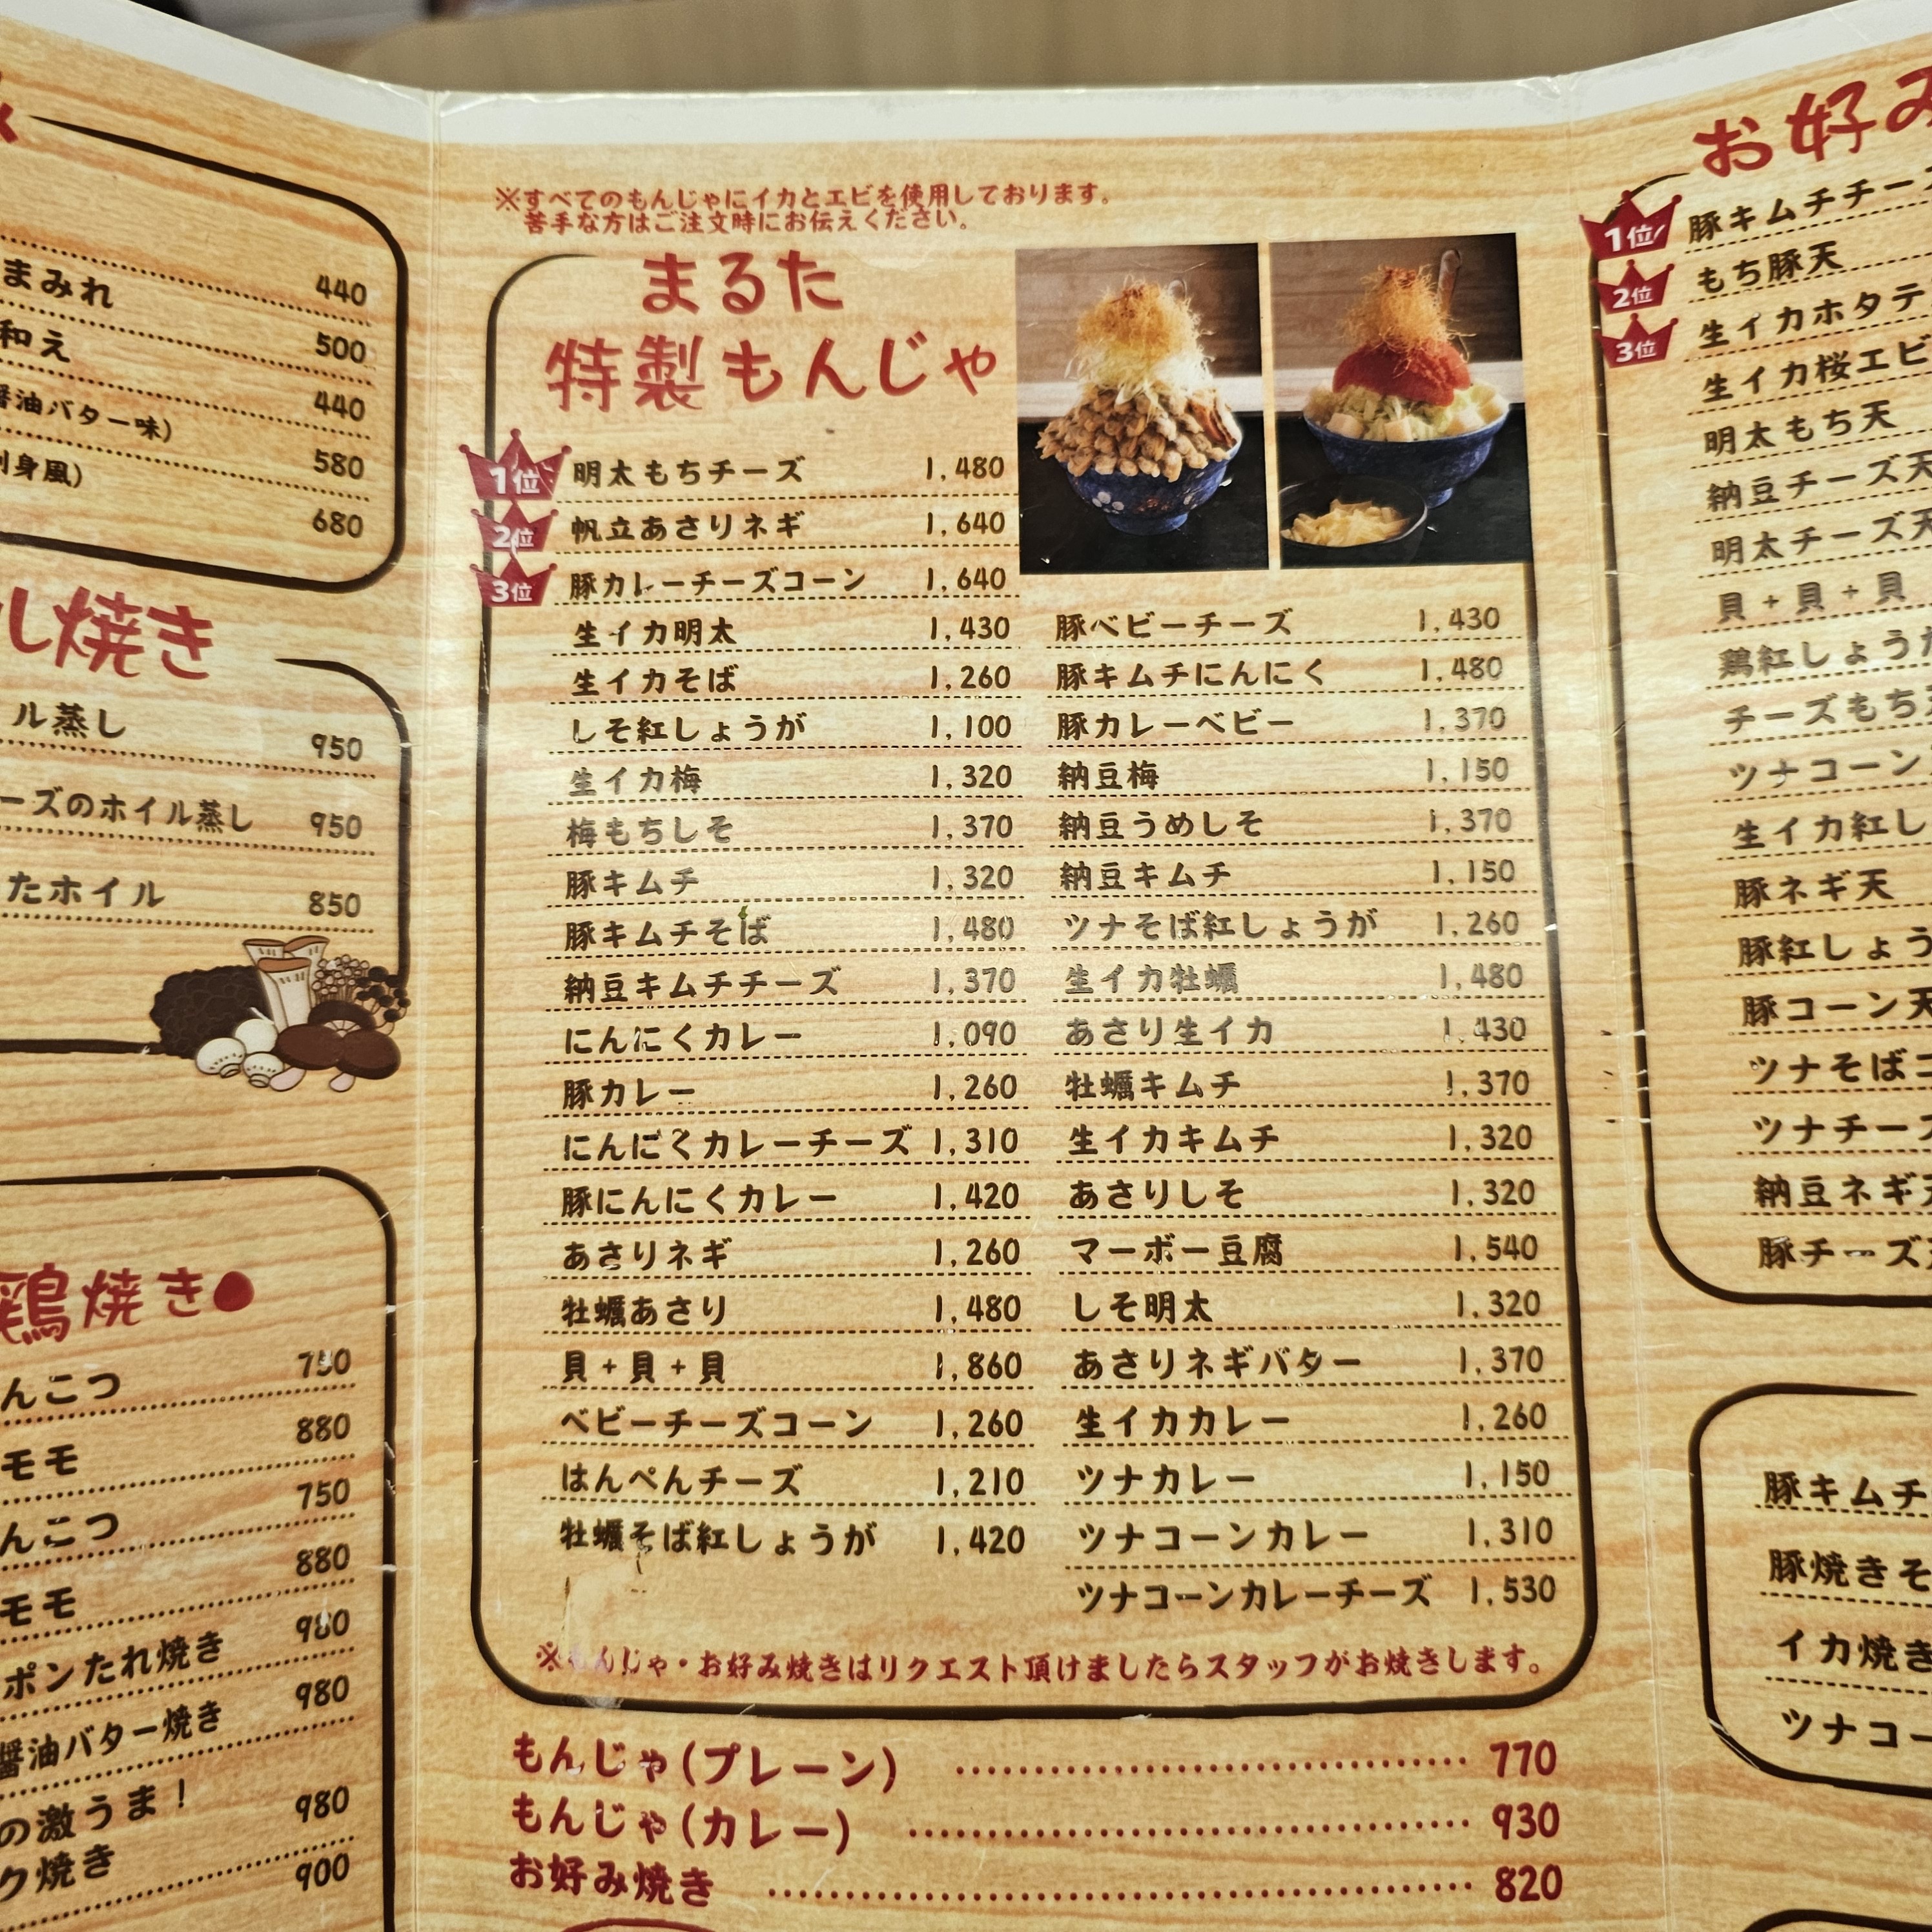 まみれ 440
和え 500
醤油バター味) 440
刺身風) 580
680
ル焼き
ル蒸し 950
ーズのホイル蒸し 950
たホイル 850
鶏焼き
んこつ 750
モモ 880
んこつ 750
モモ 880
ポンたれ焼き 980
醤油バター焼き 980
の激うま！ 980
ク焼き 900
※すべてのもんじゃにイカとエビを使用しております。
苦手な方はご注文時にお伝えください。
まるた
特製もんじゃ
1位 明太もちチーズ 1,480
2位 帆立あさりネギ 1,640
3位 豚カレーチーズコーン 1,640
生イカ明太 1,430
生イカそば 1,260
しそ紅しょうが 1,100
生イカ梅 1,320
梅もちしそ 1,370
豚キムチ 1,320
豚キムチそば 1,480
納豆キムチチーズ 1,370
にんにくカレー 1,090
豚カレー 1,260
にんにくカレーチーズ 1,310
豚にんにくカレー 1,420
あさりネギ 1,260
牡蠣あさり 1,480
貝+貝+貝 1,860
ベビーチーズコーン 1,260
はんぺんチーズ 1,210
牡蠣そば紅しょうが 1,420
豚ベビーチーズ 1,430
豚キムチにんにく 1,480
豚カレーベビー 1,370
納豆梅 1,150
納豆うめしそ 1,370
納豆キムチ 1,150
ツナそば紅しょうが 1,260
生イカ牡蠣 1,480
あさり生イカ 1,430
牡蠣キムチ 1,370
生イカキムチ 1,320
あさりしそ 1,320
マーボー豆腐 1,540
しそ明太 1,320
あさりネギバター 1,370
生イカカレー 1,260
ツナカレー 1,150
ツナコーンカレー 1,310
ツナコーンカレーチーズ 1,530
※もんじゃ・お好み焼きはリクエスト頂けましたらスタッフがお焼きします。
もんじゃ(プレーン) 770
もんじゃ(カレー) 930
お好み焼き 820
お好み
1位 豚キムチチーズ
2位 もち豚天
3位 生イカホタテ
生イカ桜エビ
明太もち天
納豆チーズ天
明太チーズ天
貝+貝+貝
鶏紅しょうが
チーズもち
ツナコーン
生イカ紅し
豚ネギ天
豚紅しょう
豚コーン天
ツナそばコ
ツナチーズ
納豆ネギ天
豚チーズ
豚キムチ
豚焼きそ
イカ焼き
ツナコー